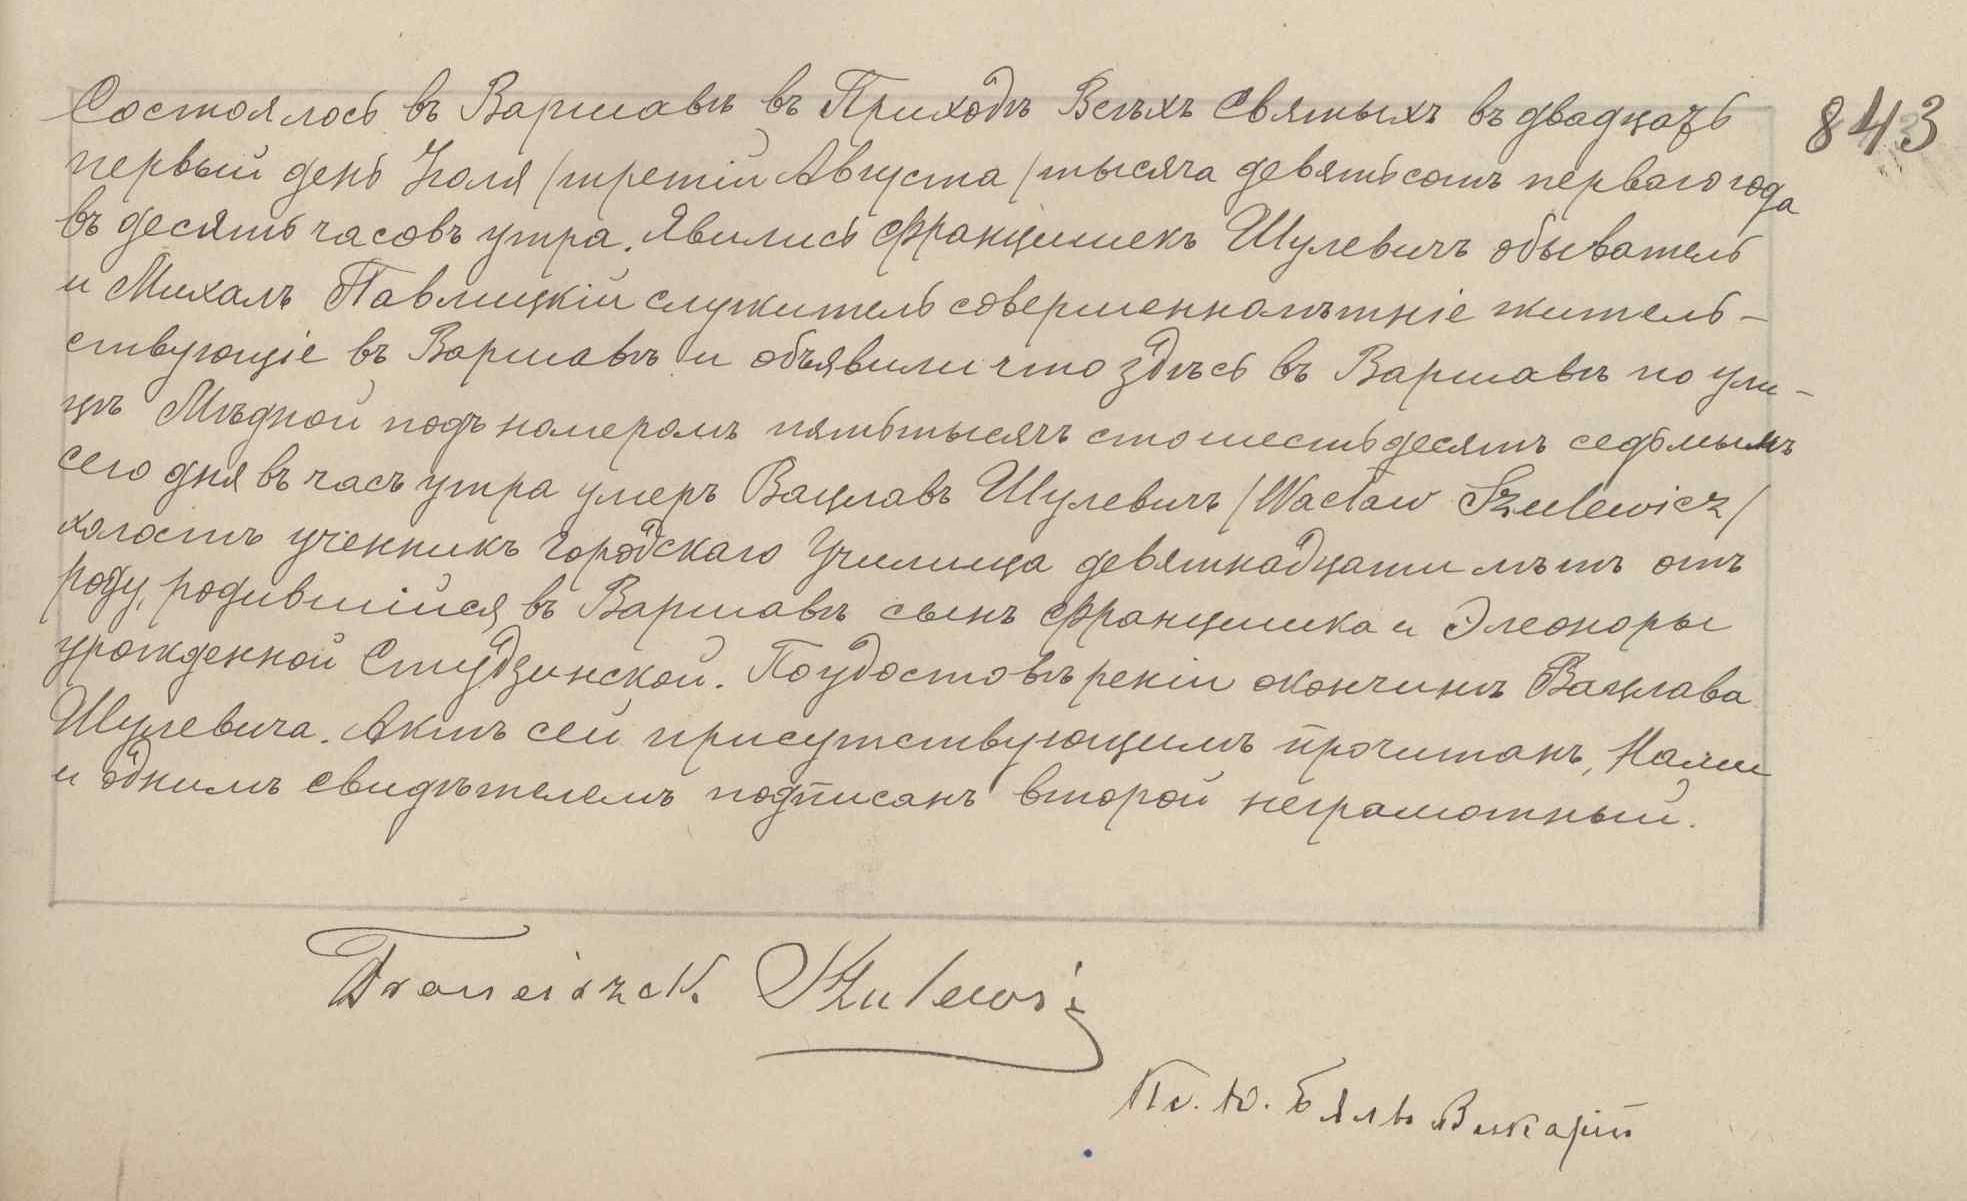 Состоялось въ Варшавѣ въ Приходѣ Всѣхъ Святыхъ въ двадцать
843
первый день Іюля /третій Августа/ тысяча девятьсотъ перваго года
въ десять часовъ утра. Явились Францишекъ Шулевичъ обыватель
и Михалъ Павлицкій служитель совершеннолѣтніе житель-
ствующіе въ Варшавѣ и объявили что здѣсь въ Варшавѣ по ули-
цѣ Мѣдной подъ номеромъ пятьтысячъ стошестьдесятъ седьмымъ
сего дня въ часъ утра умеръ Вацлавъ Шулевичъ /Wacław Szulewicz/
холостъ ученникъ Городскаго Училища девятнадцати лѣтъ отъ
роду, родившійся въ Варшавѣ сынъ Францишка и Элеоноры
урожденной Студзинской. По удостовѣреніи окончинѣ Вацлава
Шулевича. Актъ сей присутствующимъ прочитанъ, Нами
и однимъ свидѣтелемъ подписанъ второй неграмотный.
Franciszek Szulewicz
Кс. Ю. Бялы Викарій